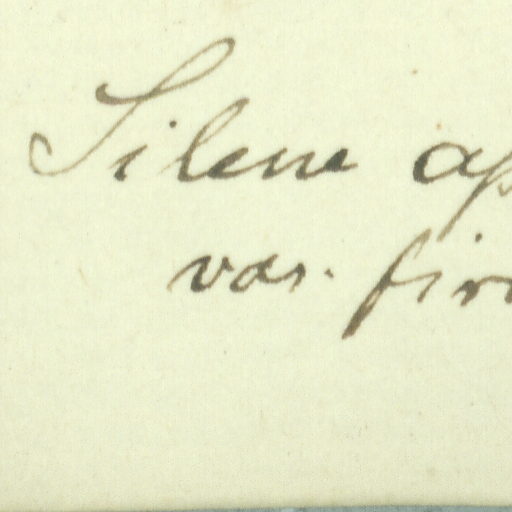 Silene ap
var. firm